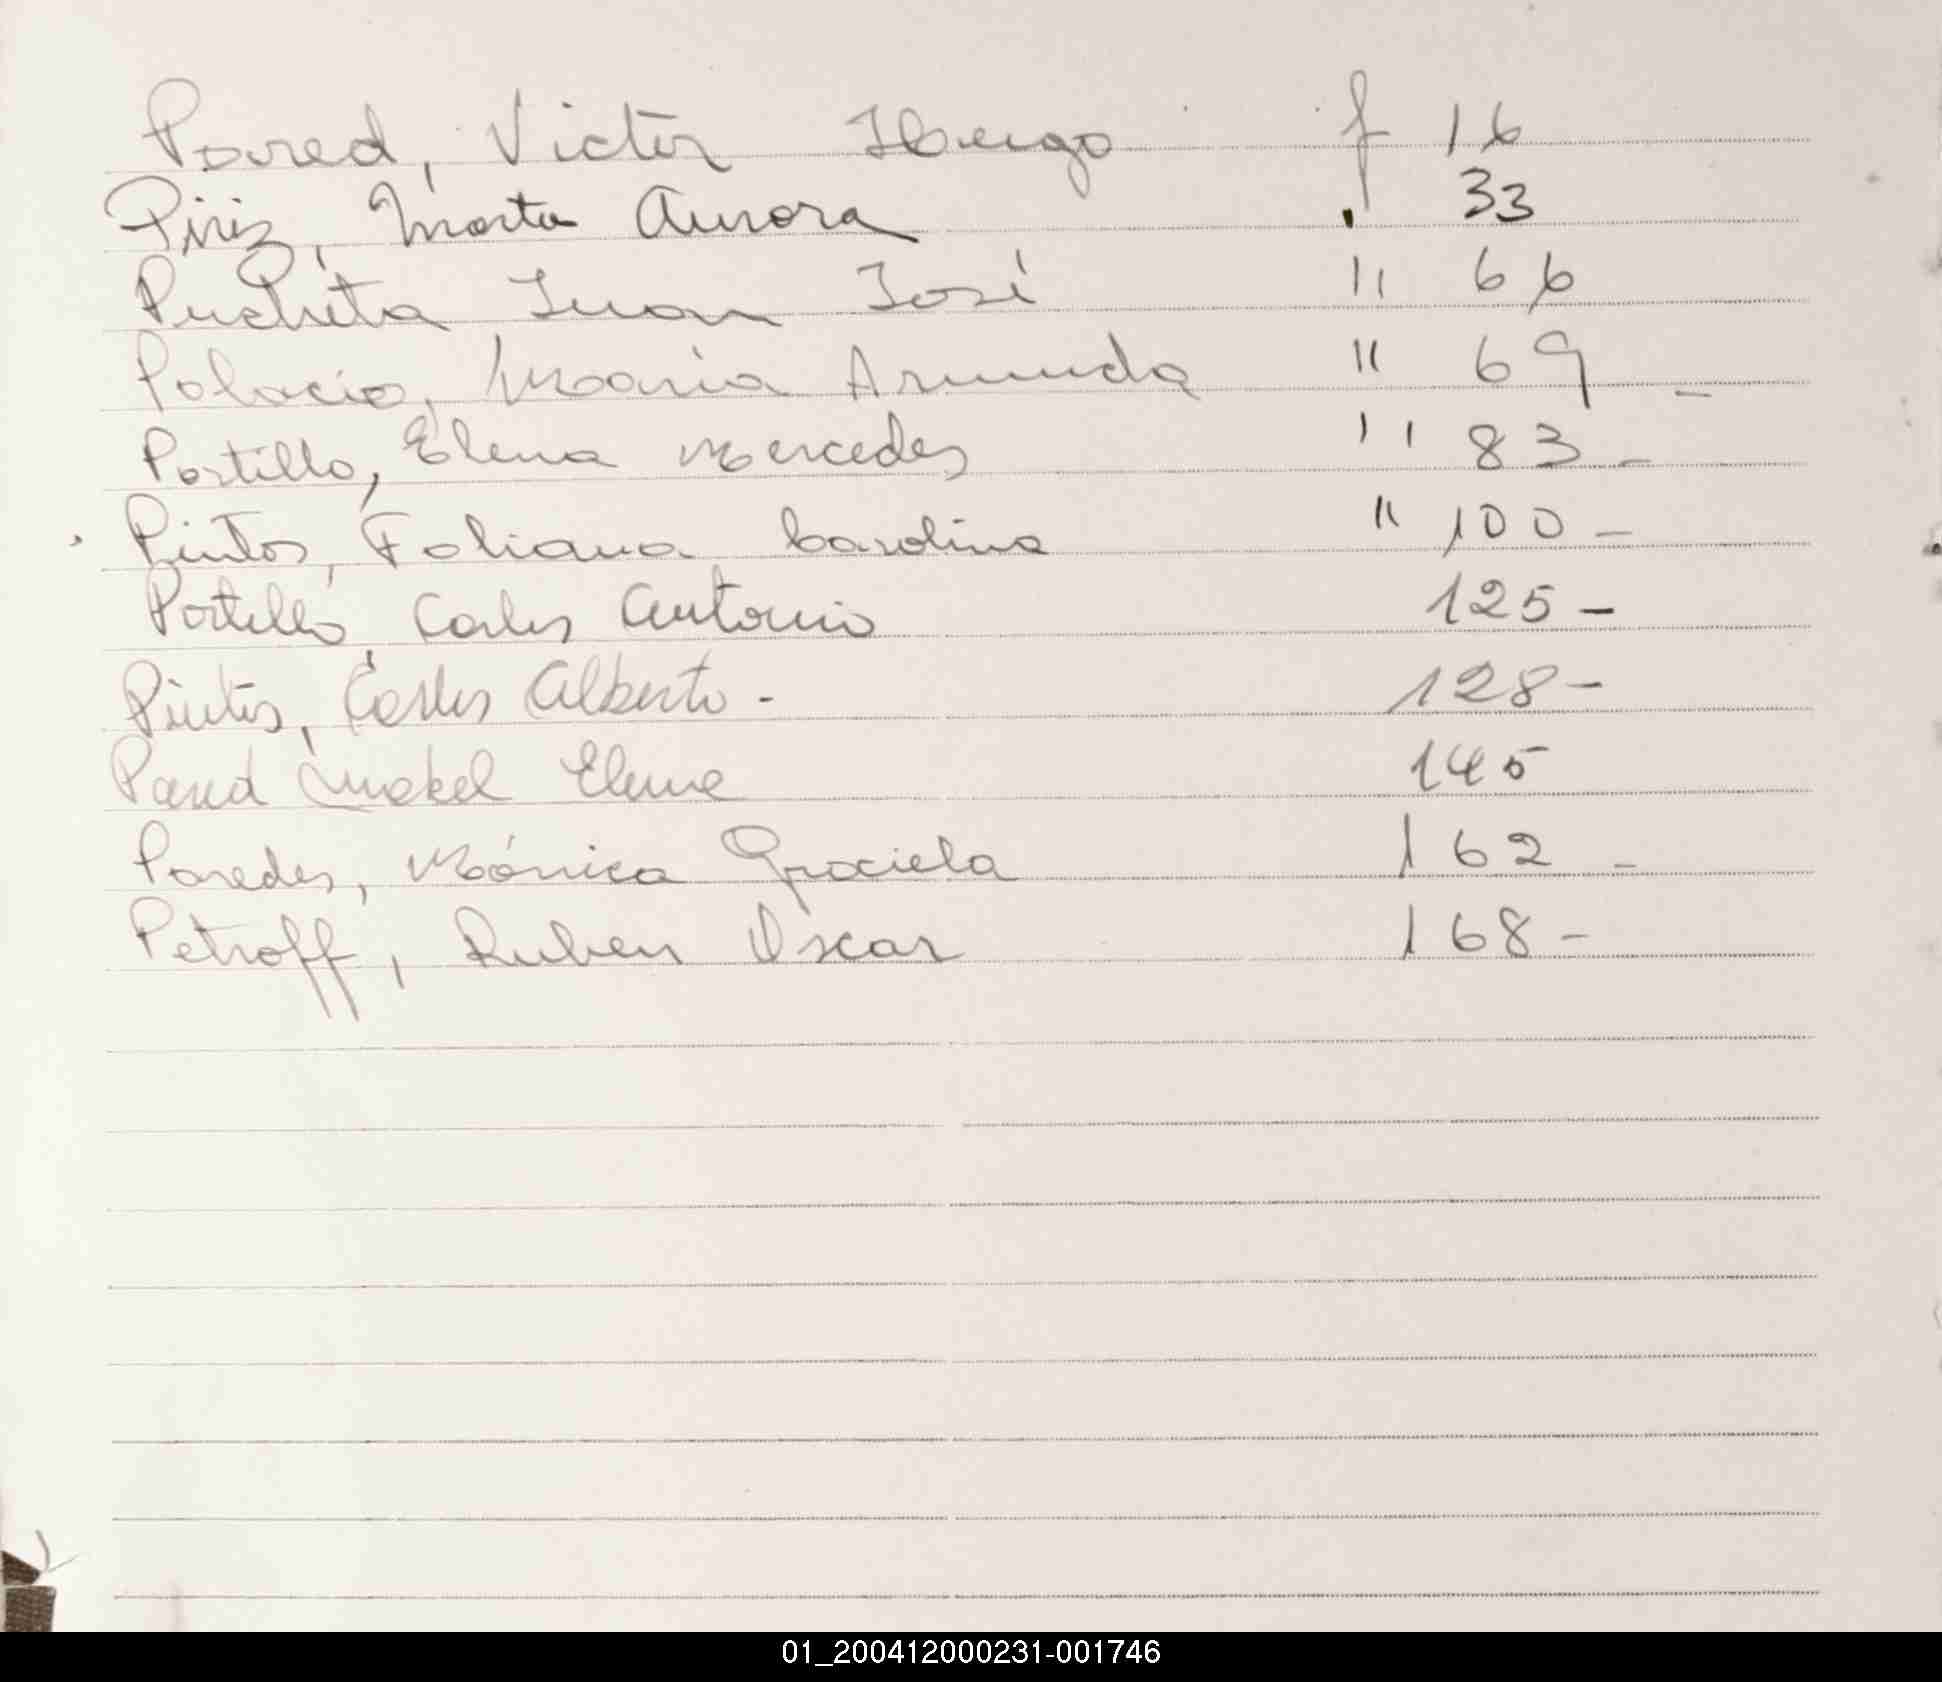 Pared, Victor Hugo f 16
Piriz, Marta Aurora " 33
Pucheta Juan José " 66
Palacio, Maria Arminda " 69 -
Portillo, Elena Mercedes " 83 -
Pintos, Foliana Carolina " 100 -
Portillo, Carlos Antonio 125 -
Pintos, Carlos Alberto - 128 -
Pared Mabel Elena 145
Paredes, Mónica Graciela 162 -
Petroff, Ruben Oscar 168 -
01_200412000231-001746